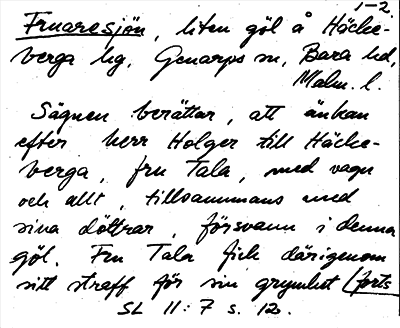 1-2.
Fruaresjön, liten göl å Häcke-
berga hg, Genarps sn, Bara hd,
Malm. l.
Sägnen berättar, att änkan
efter herr Holger till Häcke-
berga, fru Tala, med vagn
och allt, tillsammans med
sina döttrar, försvann i denna
göl. Fru Tala fick därigenom
sitt straff för sin grymhet (forts
SL 11:7 s. 12.